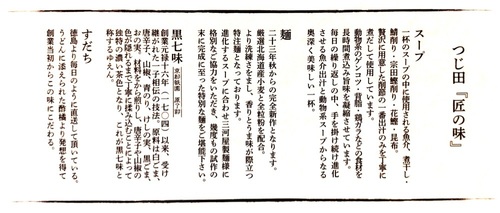 つじ田『匠の味』
スープ
一杯のスープの中に使用される魚介、煮干し・
鯖削り・宗田鰹削り・花鰹・昆布。
贅沢に用意した五種の一番出汁のみを丁寧に
煮だして使用しています。
動物系のゲンコツ・背脂・鶏ガラなどの食材を
長時間煮込み旨味を凝縮させています。
毎日の繰り返しの中、手を掛け続け進化
させる魚介出汁と動物系スープからなる
奥深く美味しい一杯。
麺
二十三年秋からの完全新作となります。
厳選北海道産小麦と全粒粉を配合。
より洗練をまし、香りとうま味が際立つ
特注麺となっております。
進化するスープに合わせ三河屋製麺様に
格別なご協力をいただき、幾度もの試作の
末に完成に至った特別な麺をご堪能下さい。
黒七味 京都祇園 原了郭
創業元禄十六年(一七〇四)以来、受け
継がれた一子相伝の製法。原材料は白ごま、
唐辛子、山椒、青のり、けしの実、黒ごま、
おの実。材料をから煎りし、唐辛子や山椒の
色が隠れるまで丁寧に揉み込むことによって、
独特の濃い茶色となり、これが黒七味と
称するゆえん。
すだち
徳島より毎日のように直送して頂いている。
うどんに添えられた酢橘より発想を得て
創業当初からこの味にこだわる。